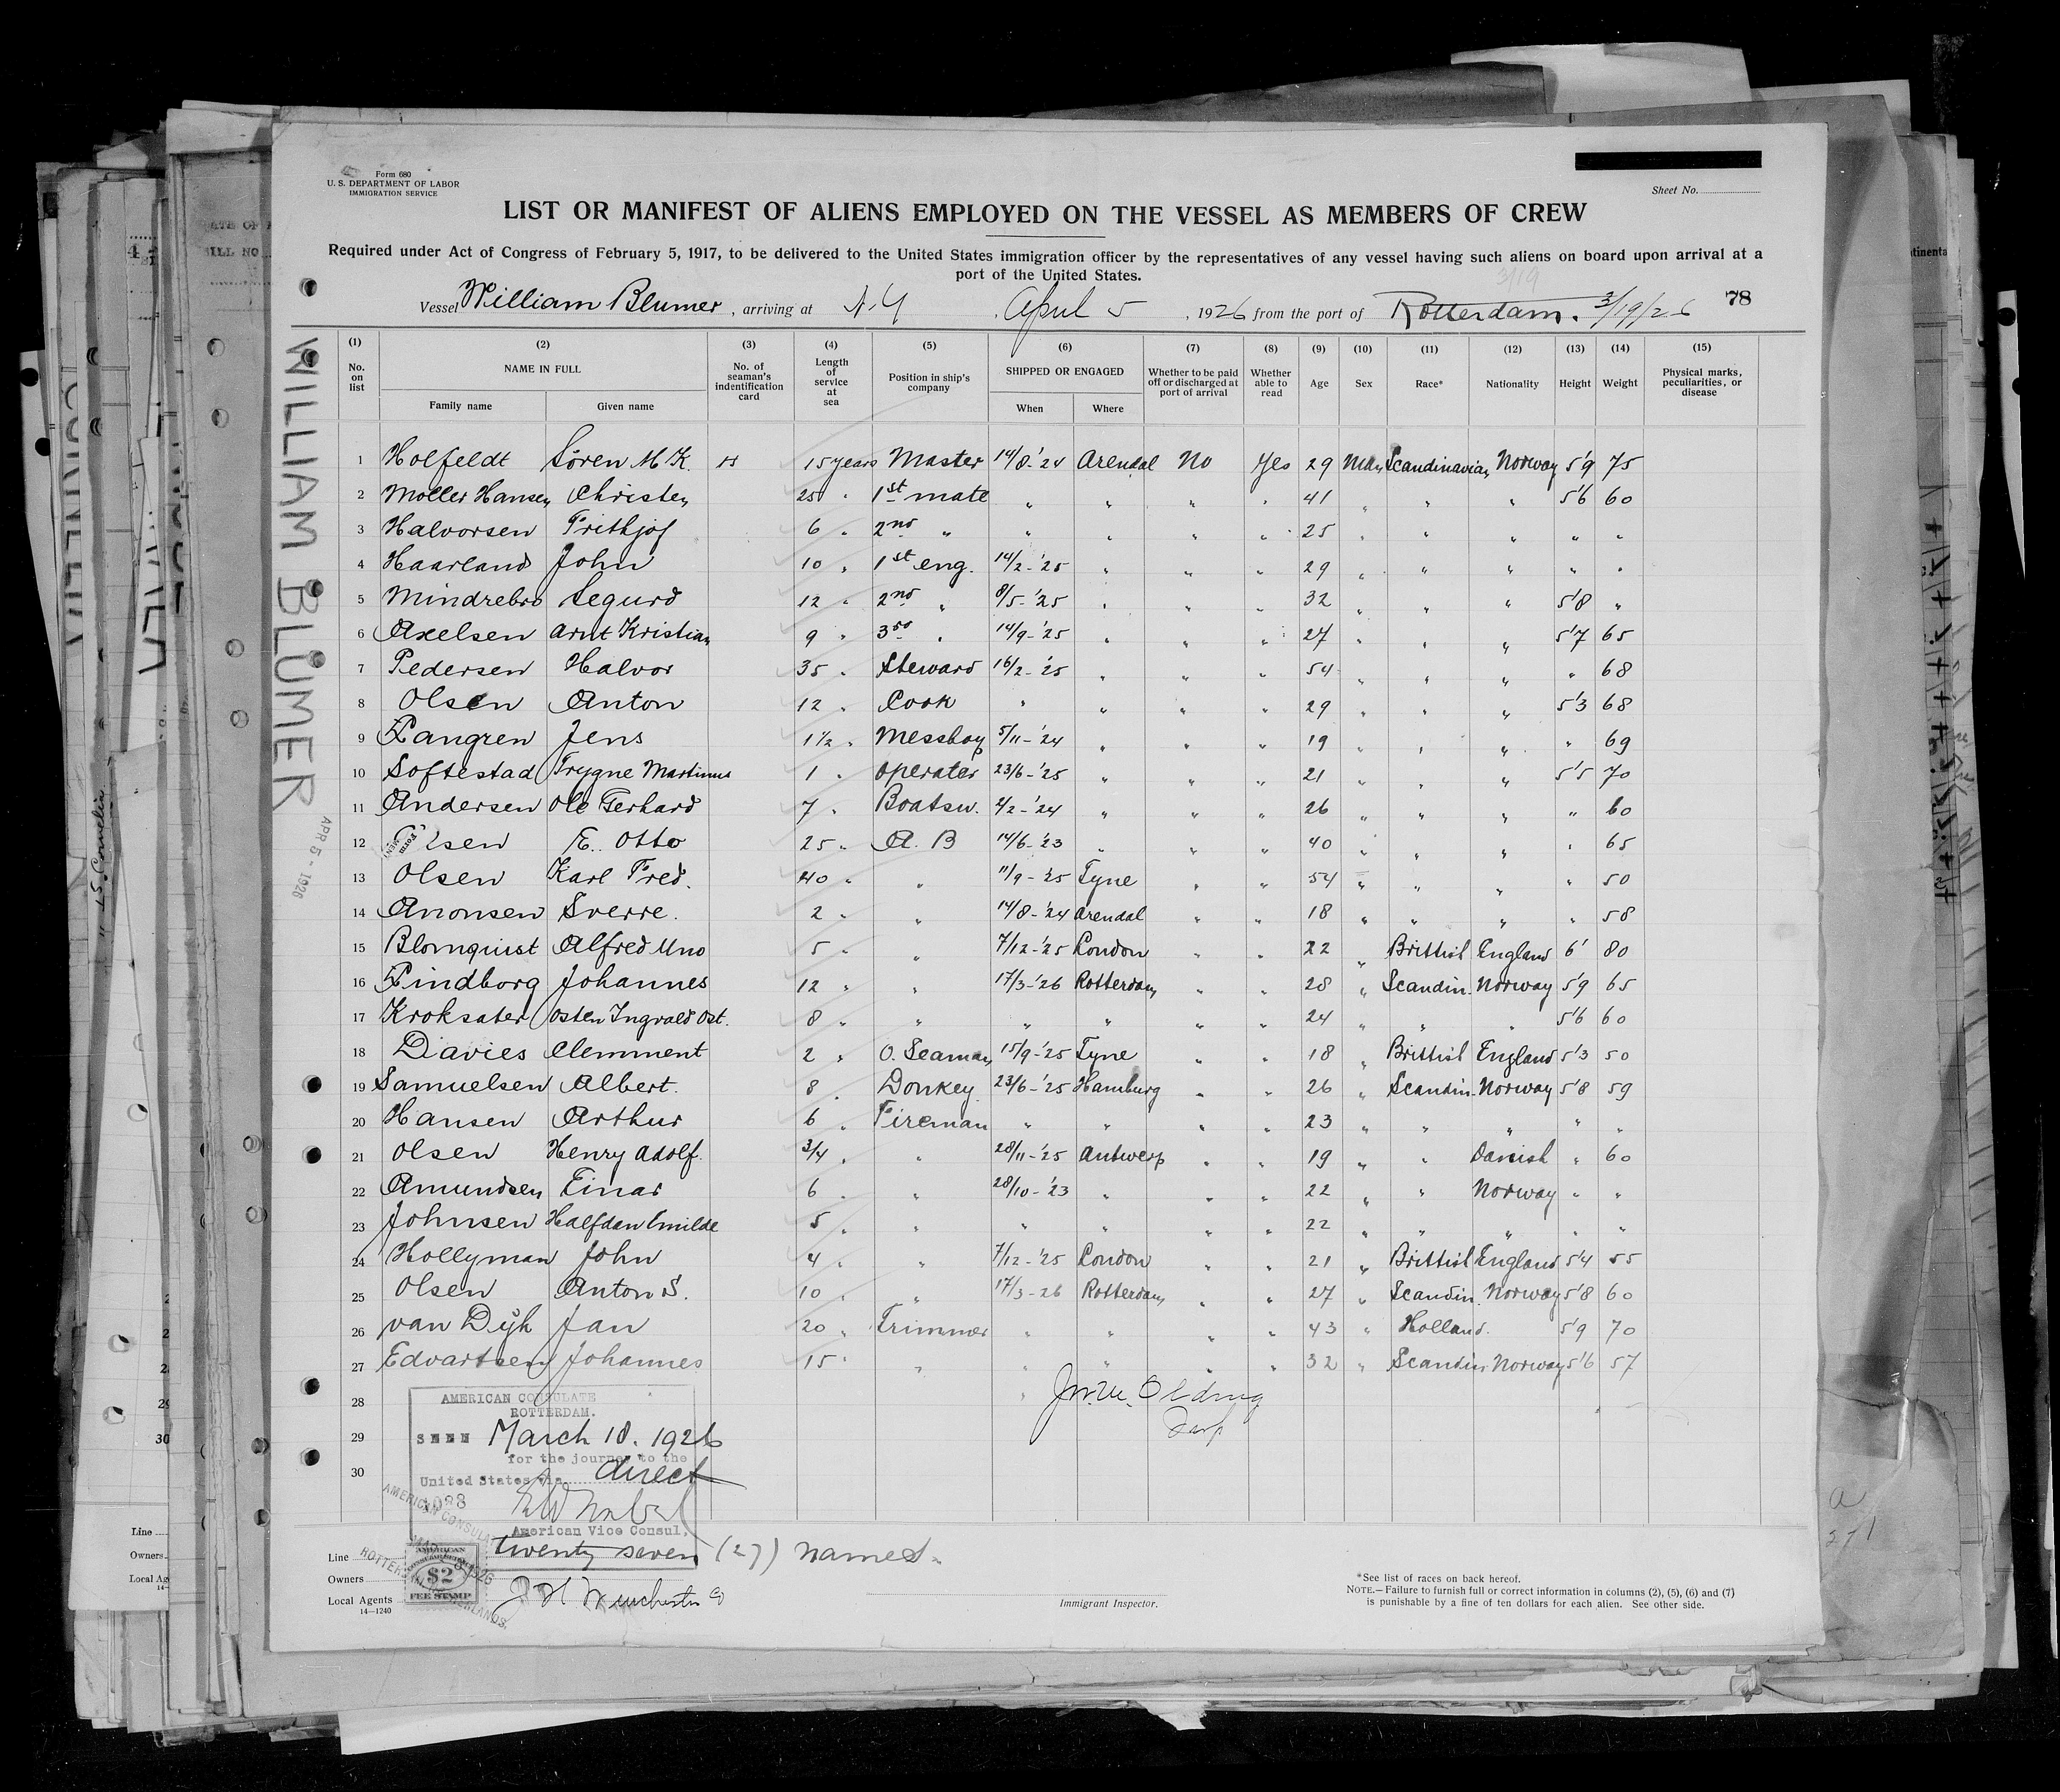 Form 680
U. S. DEPARTMENT OF LABOR
IMMIGRATION SERVICE
Sheet No.
LIST OR MANIFEST OF ALIENS EMPLOYED ON THE VESSEL AS MEMBERS OF CREW
Required under Act of Congress of February 5, 1917, to be delivered to the United States immigration officer by the representatives of any vessel having such aliens on board upon arrival at a
port of the United States.
3/19
Vessel William Blumer, arriving at N.Y, April 5, 1926 from the port of Rotterdam. 3/19/26 78
(1) (2) (3) (4) (5) (6) (7) (8) (9) (10) (11) (12) (13) (14) (15)
No. on list NAME IN FULL Family name Given name No. of seaman's indentification card Length of service at sea Position in ship's company SHIPPED OR ENGAGED When Where Whether to be paid off or discharged at port of arrival Whether able to read Age Sex Race* Nationality Height Weight Physical marks, peculiarities, or disease
1 Holfeldt Sören M K. 15 years Master 14/8-'24 Arendal No Yes 29 Man Scandinavian Norway 5'9 75
2 Moller Hansen Christen 25 " 1st mate " " " " 41 " " " 5'6 60
3 Halvorsen Frithjof 6 " 2nd " " " " " 25 " " " " "
4 Haarland John 10 " 1st eng. 14/2-'25 " " " 29 " " " " "
5 Mindrebro Segurd 12 " 2nd " 8/5-'25 " " " 32 " " " 5'8 "
6 Axelsen Arnt Kristian 9 " 3rd " 14/9-'25 " " " 27 " " " 5'7 65
7 Pedersen Halvor 35 " Steward 16/2-'25 " " " 54 " " " " 68
8 Olsen Anton 12 " Cook " " " " 29 " " " 5'3 68
9 Langren Jens 1½ " Messboy 5/11-'24 " " " 19 " " " " 69
10 Softestad Trygne Martinus 1 " Operater 23/6-'25 " " " 21 " " " 5'5 70
11 Andersen Ole Gerhard 7 " Boatsw. 2/2-'24 " " " 26 " " " " 60
12 E. Otto 25 " A. B 14/6-'23 " " " 40 " " " " 65
13 Olsen Karl Fred. 40 " " 11/9-'25 Tyne " " 54 " " " " 50
14 Anonsen Sverre. 2 " " 14/8-'24 Arendal " " 18 " " " " 58
15 Blomquist Alfred Uno 5 " " 7/12-'25 London " " 22 " Brittish England 6' 80
16 Lindborg Johannes 12 " " 17/3-'26 Rotterdam " " 28 " Scandin. Norway 5'9 65
17 Kroksater Osten Ingvald Ost. 8 " " " " " " 24 " " " 5'6 60
18 Davies Clemment 2 " O. Seaman 15/9-'25 Tyne " " 18 " Brittish England 5'3 50
19 Samuelsen Albert. 8 " Donkey 23/6-'25 Hamburg " " 26 " Scandin. Norway 5'8 59
20 Hansen Arthur 6 " Fireman " " " " 23 " " " " "
21 Olsen Henry Adolf. 3/4 " " 28/11-'25 Antwerp " " 19 " " Danish " 60
22 Amundsen Einar 6 " " 28/10-'23 " " " 22 " " Norway " "
23 Johnsen Halfdan Emilde 5 " " " " " " 22 " " " " "
24 Hollyman John 4 " " 7/12-'25 London " " 21 " Brittish England 5'4 55
25 Olsen Anton S. 10 " " 17/3-26 Rotterdam " " 27 " Scandin. Norway 5'8 60
26 van Dijk Jan 20 " Trimmer " " " " 43 " Holland. 5'9 70
27 Edvartsen Johannes 15 " " " " " " 32 " Scandin Norway 5'6 57
28
29
30
WILLIAM BLUMER
APR 5 - 1926
AMERICAN CONSULATE
ROTTERDAM.
SEEN March 18. 1926
for the journey to the
United States via direct
American Vice Consul,
twenty seven (27) names.
AMERICAN CONSULAR
$2
FEE STAMP
Line
Owners
Local Agents
14—1240
Immigrant Inspector.
*See list of races on back hereof.
NOTE.—Failure to furnish full or correct information in columns (2), (5), (6) and (7)
is punishable by a fine of ten dollars for each alien. See other side.